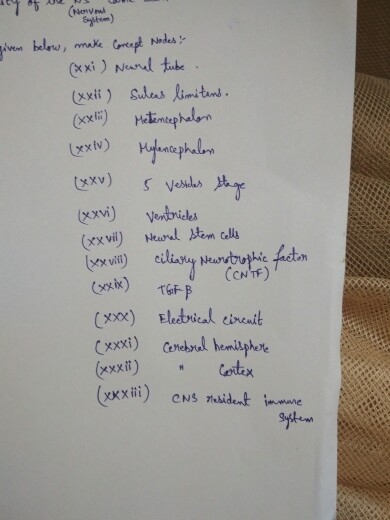 of the NS
(Nervous
System)
given below, make Concept Nodes:-
(xxi) Neural tube.
(xxii) Sulcus limitens.
(xxiii) Metencephalon
(xxiv) Mylencephalon
(xxv) 5 Vesicles Stage
(xxvi) Ventricles
(xxvii) Neural Stem cells
(xxviii) Ciliary Neurotrophic factor
(CNTF)
(xxix) TGFβ
(xxx) Electrical circuit
(xxxi) Cerebral hemisphere
(xxxii) " Cortex
(xxxiii) CNS resident immune
System